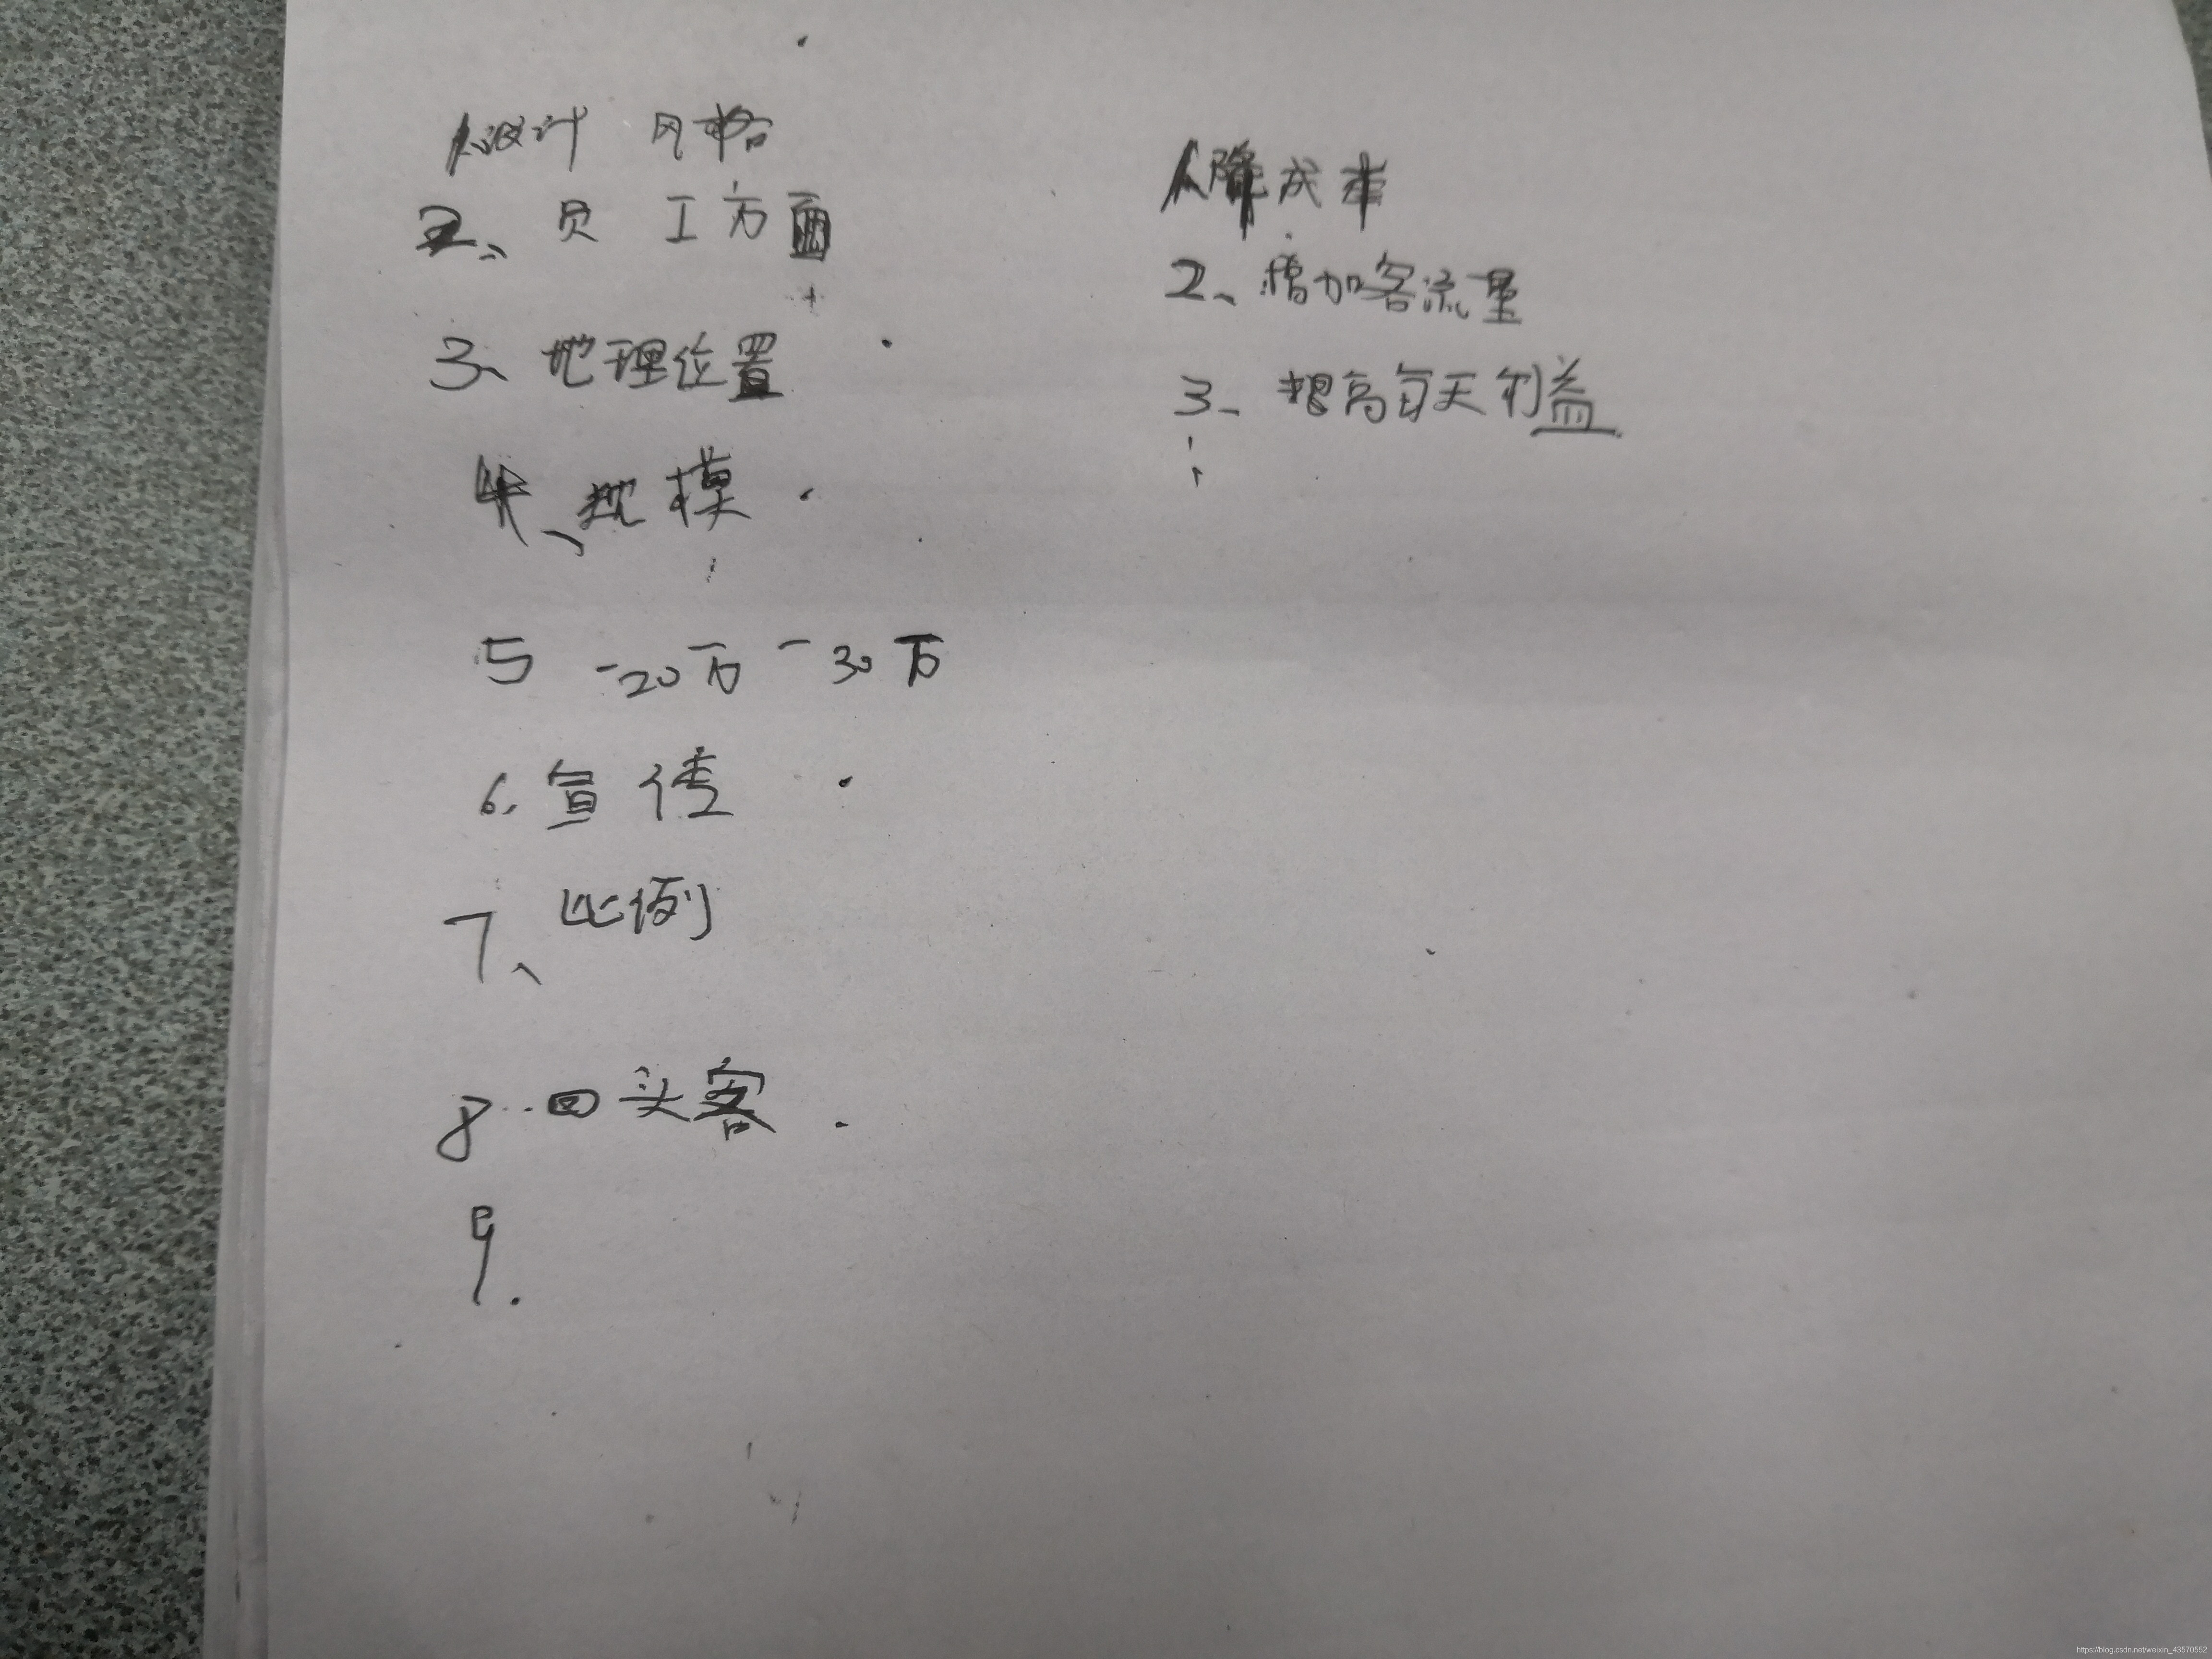 1、设计 风格
2、员工方面
3、地理位置
4、规模
5 -20万-30万
6、宣传
7、比例
8..回头客.
9.
1、降成本
2、增加客流量
3、提高每天利益
https://blog.csdn.net/weixin_43570552